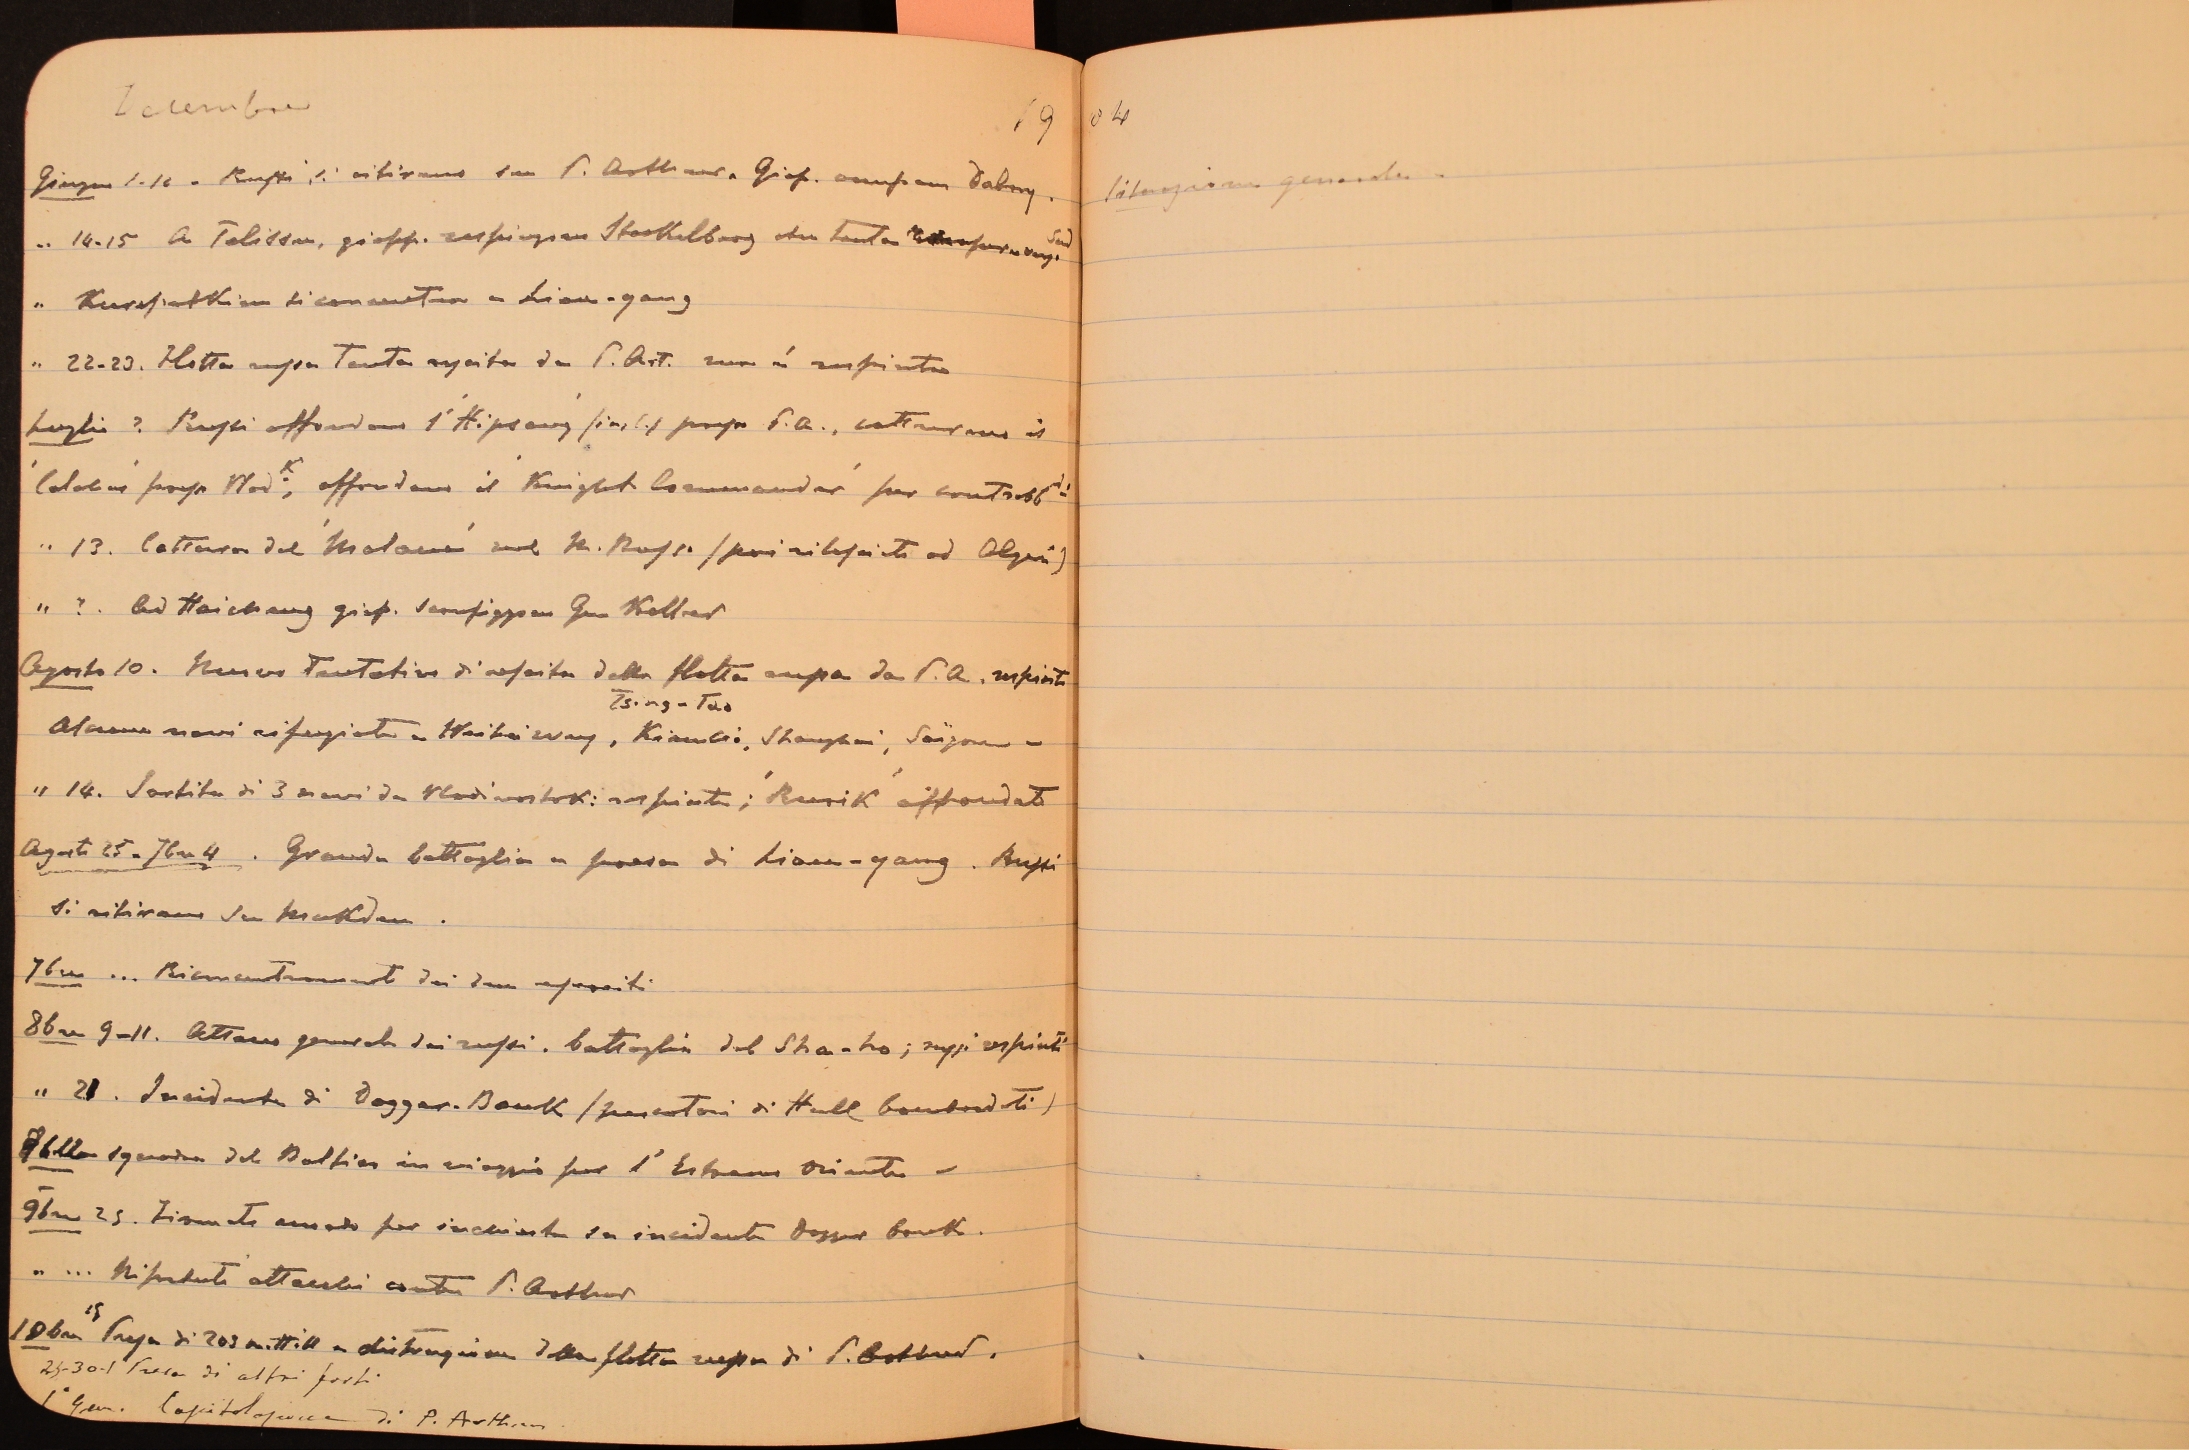 Dicembre 1904
Giugno 1-16 - Russi si ritirano su P. Arthur. Giap. occupano Dalny.
" 14-15 A Telissu, giapp. respingono Stackelberg che tenta
" Kuropatkine si concentra a Liau-yang
" 22-23. Flotta russa tenta uscita da P. Art. ma è respinta
Luglio ? Russi affondano l''Hipsang' (ingl.) presso P.A., catturano il
'Calchas' presso Vlad.k, affondano il 'Knight Commander' per contrabb.
" 13. Cattura del 'Malacca' nel M. Rosso (poi rilasciato ad Algeri)
" ?. Ad Haicheng giap. sconfiggono Gen Keller
Agosto 10. Nuovo tentativo di uscita della flotta russa da P.A. respinto
Tsing-Tao
Alcune navi rifugiate a Weihaiwey, Kiauciò, Shanghai, Saïgon -
" 14. Sortita di 3 navi da Vladivostok: respinta; 'Rurik' affondato
Agosto 25 - 7bre 4. Grande battaglia e presa di Liau-yang. Russi
si ritirano su Mukden.
7bre ... Riconcentramento dei due eserciti
8bre 9-11. Attacco generale dei russi. Battaglia del Sha-ho; russi respinti
" 21. Incidente di Dogger-Bank (pescatori di Hull bombardati)
squadra del Baltico in viaggio per l'Estremo Oriente -
9bre 25. Firmato accordo per inchiesta su incidente Dogger Bank.
" ... Ripetuti attacchi contro P. Arthur
10bre 15 Presa di 203 m. Hill e distruzione della flotta russa di P. Arthur.
25-30-1 Presa di altri forti
1° Gen. Capitolazione di P. Arthur
Situazione generale -